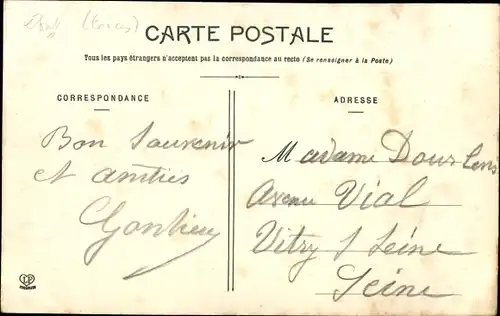 CARTE POSTALE
Tous les pays étrangers n'acceptent pas la correspondance au recto (Se renseigner à la Poste)
CORRESPONDANCE
ADRESSE
Bon Souvenir
et amitiés
Madame Dourlens
Avenue Vial
Vitry s/ Seine
Seine